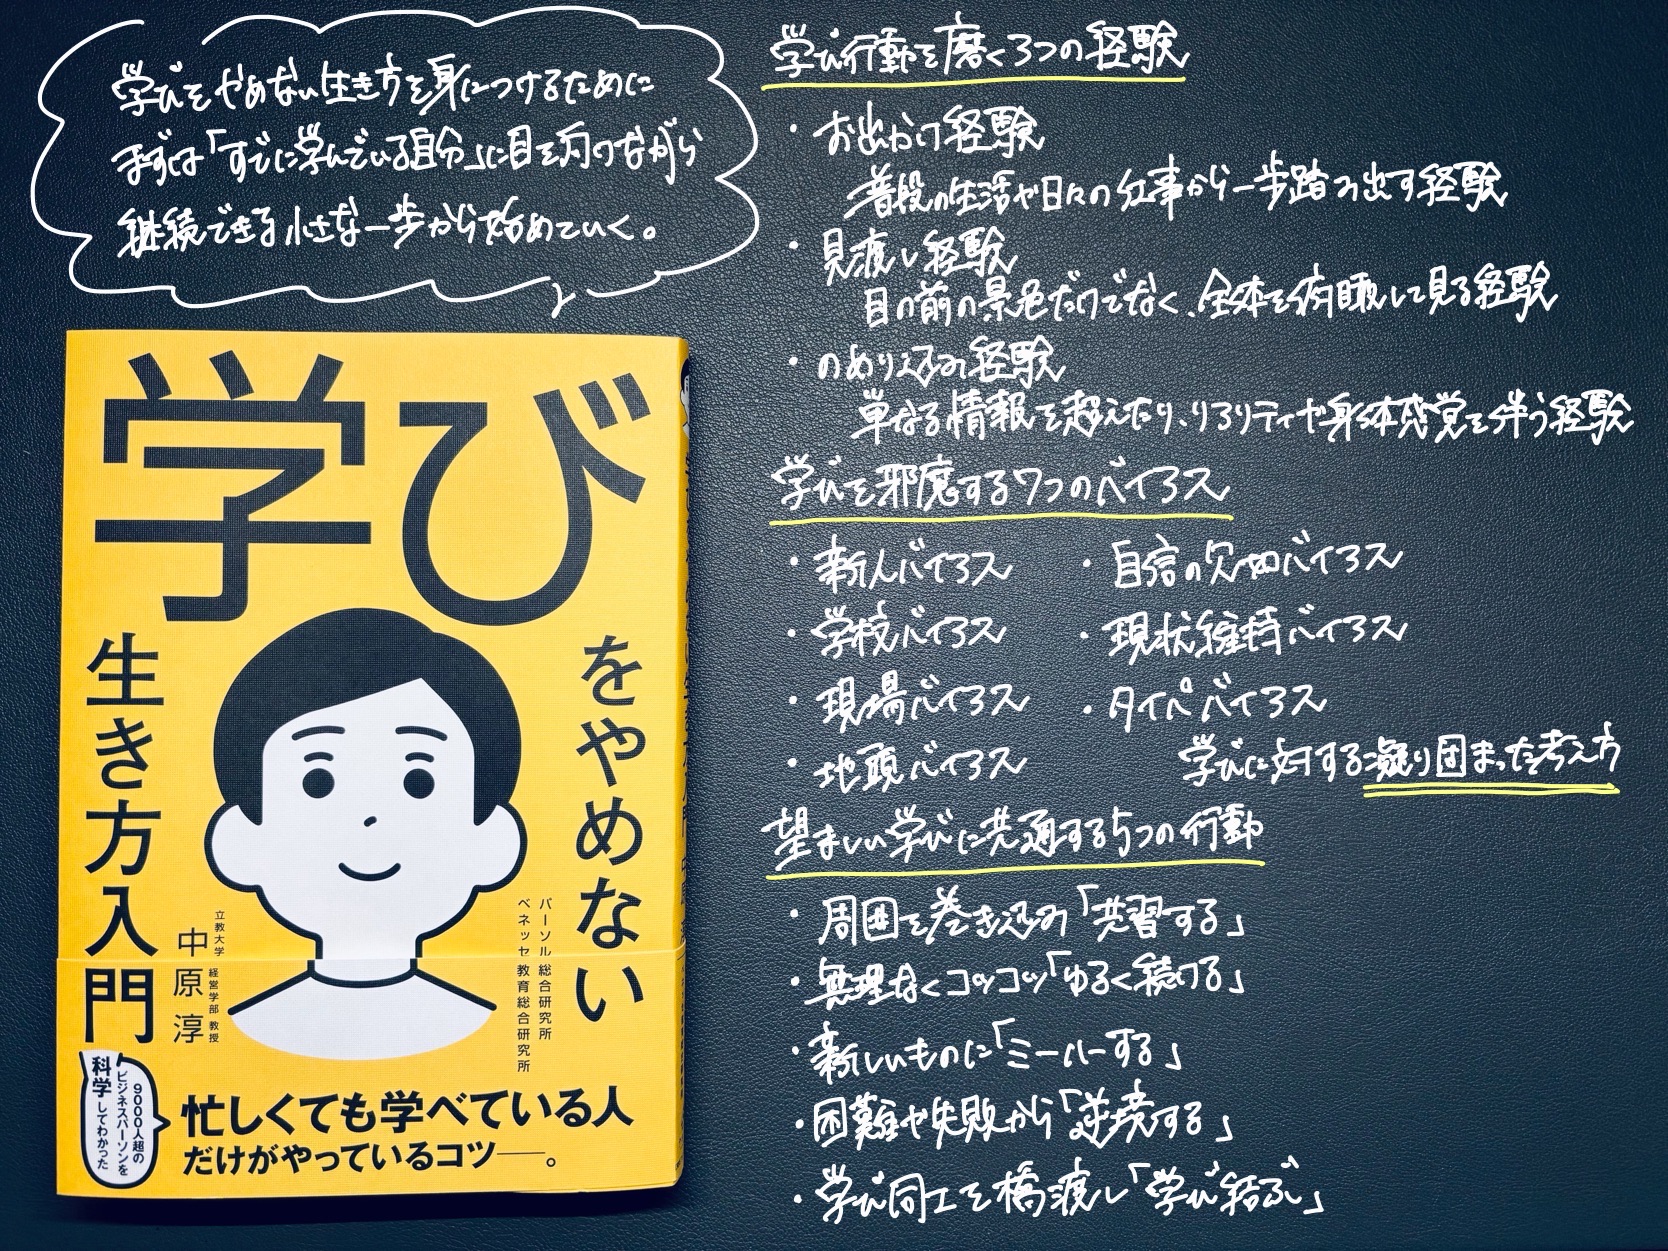 学びをやめない生き方を身につけるために
まずは「すでに学んでいる自分」に目を向けながら
継続できる小さな一歩から始めていく。
学び行動を磨く3つの経験
・お出かけ経験
普段の生活や日々の仕事から一歩踏み出す経験
・見渡し経験
目の前の景色だけでなく、全体を俯瞰して見る経験
・のめり込み経験
単なる情報を超えたり、リアリティや身体感覚を伴う経験
学びを邪魔する7つのバイアス
・新人バイアス
・学校バイアス
・現場バイアス
・地頭バイアス
・自信の欠如バイアス
・現状維持バイアス
・タイパバイアス
学びに対する凝り固まった考え方
望ましい学びに共通する5つの行動
・周囲を巻き込み「共習する」
・無理なくコツコツ「ゆるく続ける」
・新しいものに「ミーハーする」
・困難や失敗から「逆境する」
・学び同士を橋渡し「学び結ぶ」
学び
をやめない
生き方入門
パーソル総合研究所
ベネッセ教育総合研究所
立教大学 経営学部 教授
中原 淳
9000人超の
ビジネスパーソンを
科学してわかった
忙しくても学べている人
だけがやっているコツ――。